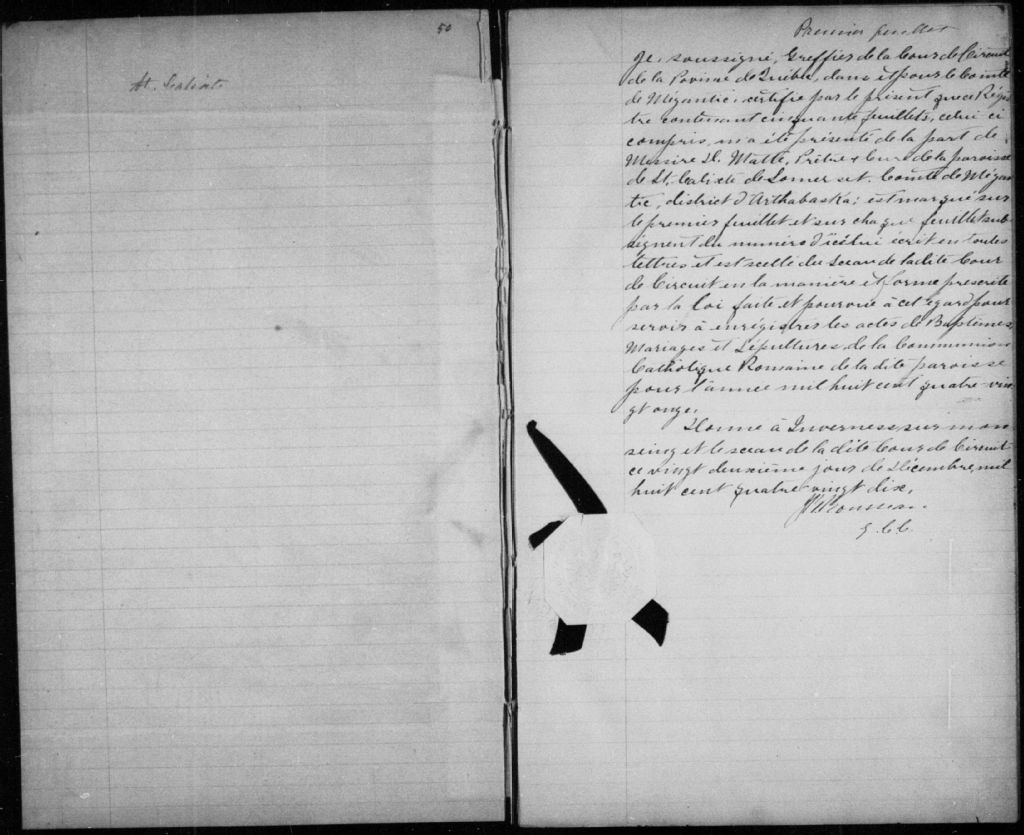 50
St. Calixte
Premier feuillet
Je, soussigné, Greffier de la Cour de Circuit
de la Province de Québec, dans et pour le Comté
de Mégantic, certifie par le présent que ce Régis
tre contenant cinquante feuillets, celui ci
compris, m'a été présenté de la part de
Messire D. Matte, Prêtre & Curé de la paroisse
de St. Calixte de Somerset. Comté de Mégan
tic, district d'Arthabaska; est marqué sur
le premier feuillet et sur chaque feuillet sub
séquent du numéro d'icelui écrit en toutes
lettres et est scellé du Sceau de la dite Cour
de Circuit en la manière et forme prescrite
par la loi faite et pourvue à cet égard pour
servir à enrégistrer les actes de Baptêmes,
Mariages et Sépultures de la Communion
Catholique Romaine de la dite paroisse
pour l'année mil huit cent quatre-vin
gt onze.
Donné à Inverness, sur mon
seing et le sceau de la dite Cour de Circuit
ce vingt deuxième jour de Décembre, mil
huit cent quatre-vingt dix.
Rousseau
G. C. C.